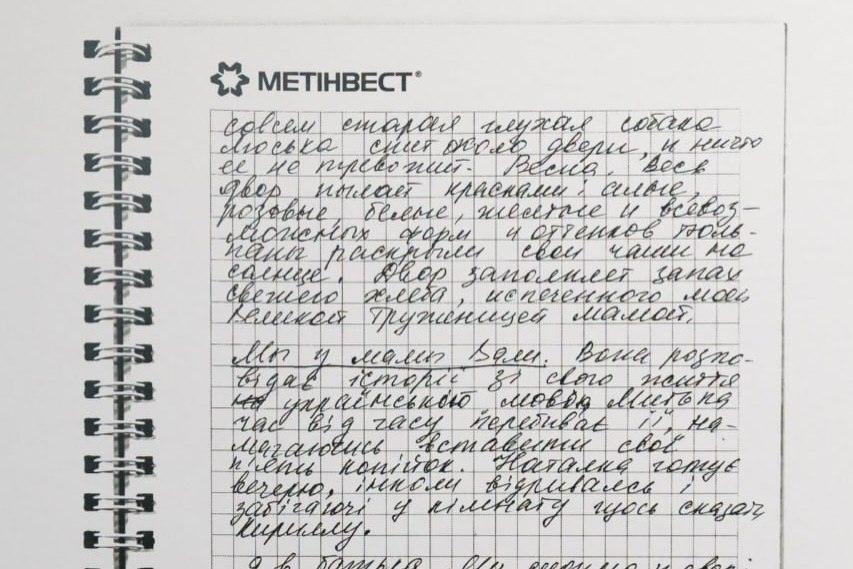 МЕТІНВЕСТ®
совсем старая глухая собака
Люська спит около двери, и ничто
ее не тревожит. Весна. Весь
двор пылает красками: алые,
розовые, белые, желтые и всевоз-
можных форм и оттенков тюль-
паны раскрыли свои чаши на
солнце. Двор заполняет запах
свежего хлеба, испеченного моей
великой труженицей мамой.
Мы у мамы Вали. Вона розпо-
відає історії зі свого життя
українською мовою. Митька
час від часу перебиває її, на-
магаючись вставити свої
п'ять копійок. Наталка готує
вечерю, інколи відриваясь і
забігаючі у кімнату щось сказать
Кириллу.
Я в батька. Ми сидимо у дворі